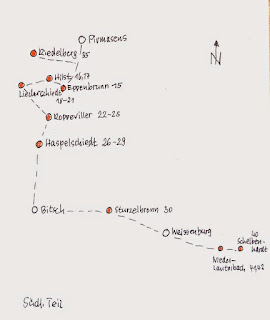 Pirmasens
N
Riedelberg 35
Hilst 16,17
Eppenbrunn -15
Liederschiedt
18-21
Roppeviller 22-25
Haspelschiedt 26-29
Bitsch
Sturzelbronn 30
Weissenburg
40
Scheiben-
hardt
Nieder-
Lauterbach
Südl. Teil